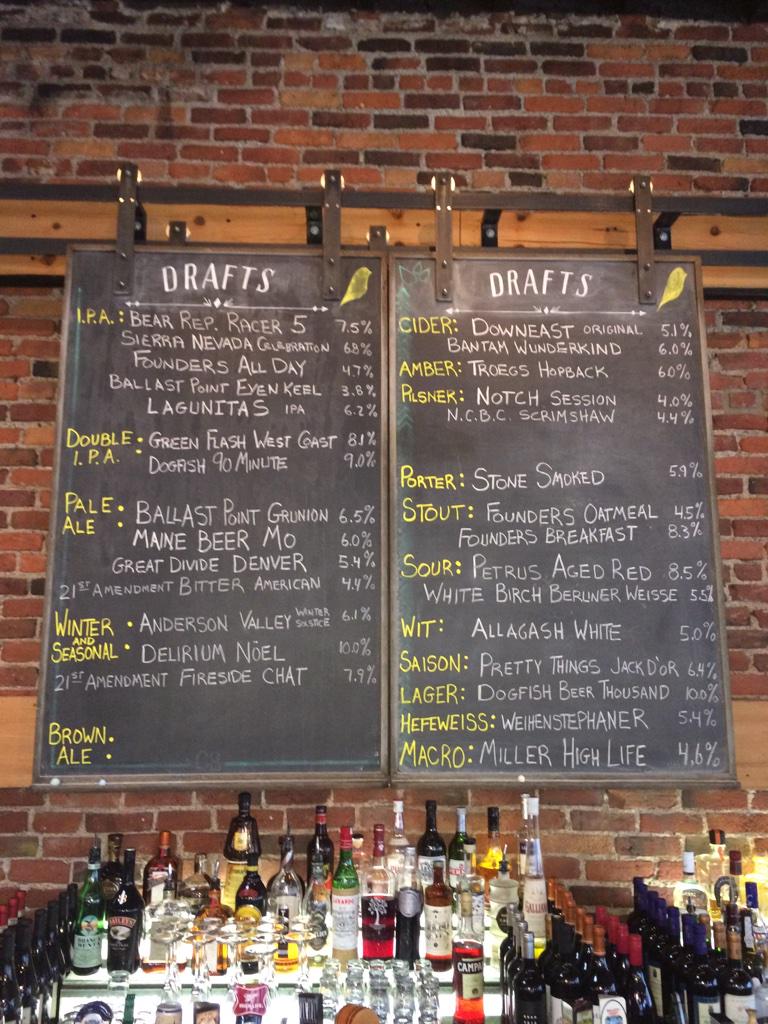 DRAFTS
I.P.A.: BEAR REP. RACER 5 7.5%
SIERRA NEVADA CELEBRATION 68%
FOUNDERS ALL DAY 4.7%
BALLAST POINT EVEN KEEL 3.8%
LAGUNITAS IPA 6.2%
DOUBLE I.P.A.: GREEN FLASH WEST COAST 8.1%
DOGFISH 90 MINUTE 9.0%
PALE ALE: BALLAST POINT GRUNION 6.5%
MAINE BEER MO 6.0%
GREAT DIVIDE DENVER 5.4%
21ST AMENDMENT BITTER AMERICAN 4.4%
WINTER AND SEASONAL: ANDERSON VALLEY WINTER SOLSTICE 6.1%
DELIRIUM NÖEL 10.0%
21ST AMENDMENT FIRESIDE CHAT 7.9%
BROWN ALE:
DRAFTS
CIDER: DOWNEAST ORIGINAL 5.1%
BANTAM WUNDERKIND 6.0%
AMBER: TROEGS HOPBACK 60%
PILSNER: NOTCH SESSION 4.0%
N.C.B.C. SCRIMSHAW 4.4%
PORTER: STONE SMOKED 5.9%
STOUT: FOUNDERS OATMEAL 4.5%
FOUNDERS BREAKFAST 8.3%
SOUR: PETRUS AGED RED 8.5%
WHITE BIRCH BERLINER WEISSE 5.5%
WIT: ALLAGASH WHITE 5.0%
SAISON: PRETTY THINGS JACK D'OR 6.4%
LAGER: DOGFISH BEER THOUSAND 10.0%
HEFEWEISS: WEIHENSTEPHANER 5.4%
MACRO: MILLER HIGH LIFE 4.6%
BAILEYS
CAMPARI